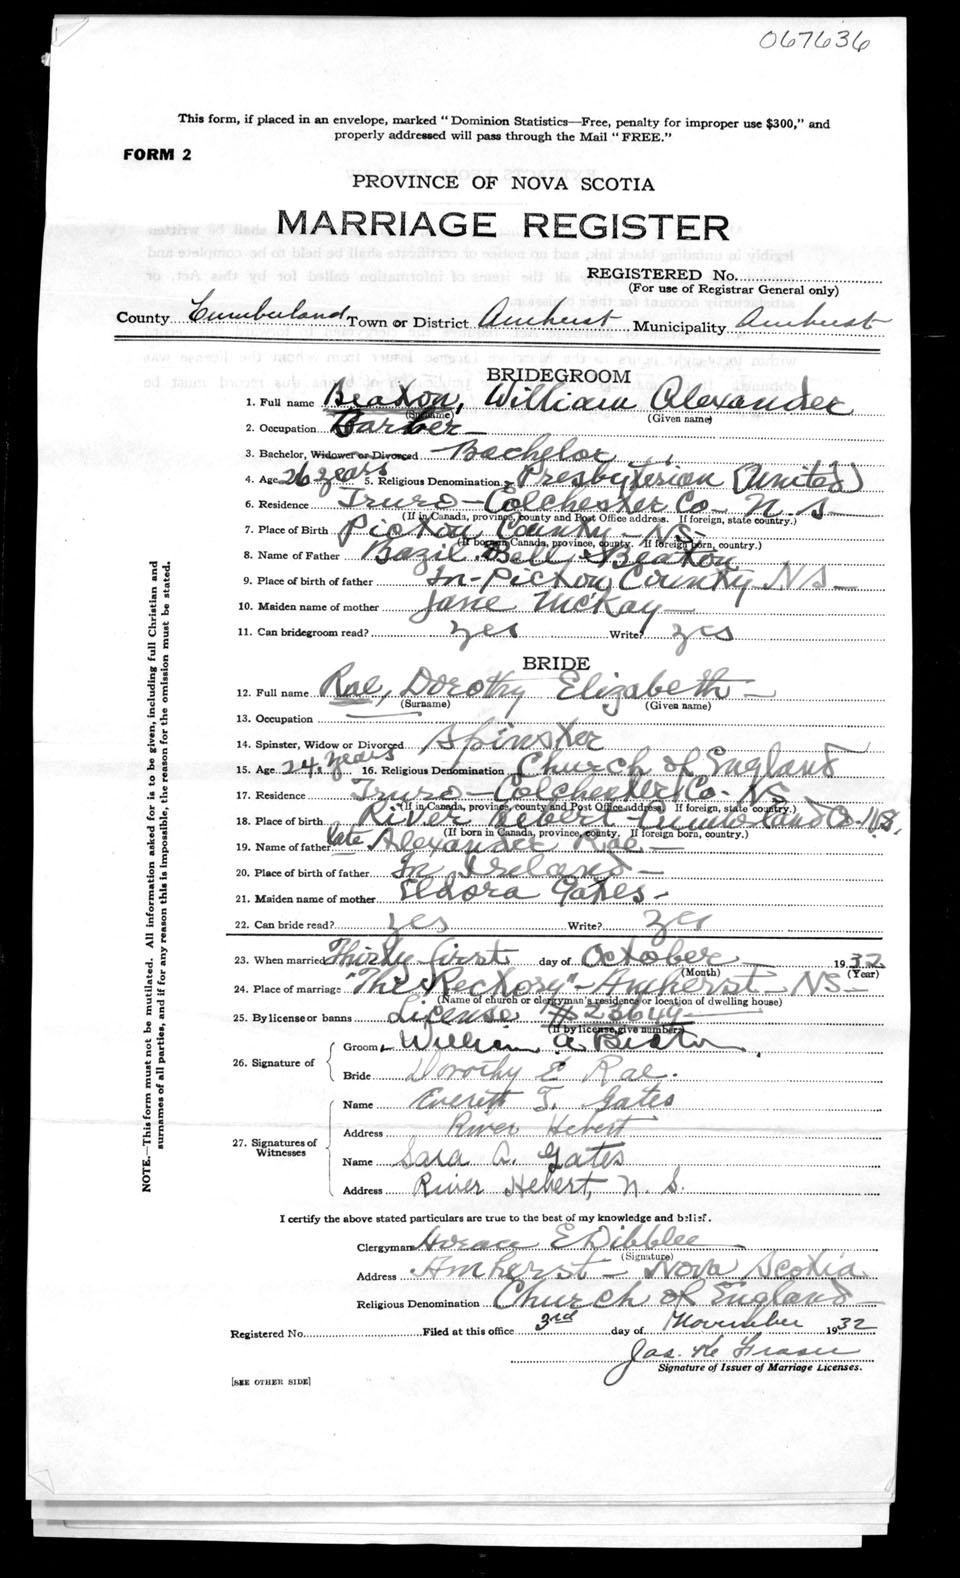 067636
This form, if placed in an envelope, marked "Dominion Statistics—Free, penalty for improper use $300," and
properly addressed will pass through the Mail "FREE."
FORM 2
PROVINCE OF NOVA SCOTIA
MARRIAGE REGISTER
REGISTERED No.
(For use of Registrar General only)
County Cumberland Town or District Amherst Municipality Amherst
BRIDEGROOM
1. Full name Beaton, William Alexander
(Surname) (Given name)
2. Occupation Barber —
3. Bachelor, Widower or Divorced — Bachelor
4. Age 26 years 5. Religious Denomination Presbyterian (United)
6. Residence Truro — Colchester Co — N.S —
(If in Canada, province, county and Post Office address. If foreign, state country.)
7. Place of Birth Pictou County — N.S.
(If born in Canada, province, county. If foreign born, country.)
8. Name of Father Bazil Bell Beaton
9. Place of birth of father In — Pictou County NS —
10. Maiden name of mother Jane McKay —
11. Can bridegroom read? yes Write? yes
BRIDE
12. Full name Rae, Dorothy Elizabeth —
(Surname) (Given name)
13. Occupation
14. Spinster, Widow or Divorced Spinster
15. Age 24 years 16. Religious Denomination Church of England
17. Residence Truro — Colchester Co. NS
(If in Canada, province, county and Post Office address) If foreign, state country.)
18. Place of birth River Hebert — Cumberland Co. N.S.
(If born in Canada, province, county. If foreign born, country.)
19. Name of father late Alexander Rae —
20. Place of birth of father In Ireland —
21. Maiden name of mother Eldora Gates —
22. Can bride read? yes Write? yes
23. When married Thirty first day of October 1932
(Month) (Year)
24. Place of marriage "The Rectory" — Amherst — NS —
(Name of church or clergyman's residence or location of dwelling house)
25. By license or banns License # 23649
(If by license, give number)
26. Signature of Groom William A Beaton
Bride Dorothy E Rae.
27. Signatures of Witnesses
Name Everett T. Gates
Address River Hebert
Name Sara A. Gates
Address River Hebert, N. S.
I certify the above stated particulars are true to the best of my knowledge and belief.
Clergyman Horace E Dibblee
(Signature)
Address Amherst — Nova Scotia
Religious Denomination Church of England —
Registered No. Filed at this office 3rd day of November 1932
Jas. K Fraser
Signature of Issuer of Marriage Licenses.
[SEE OTHER SIDE]
NOTE.—This form must not be mutilated. All information asked for is to be given, including full Christian and
surnames of all parties, and if for any reason this is impossible, the reason for the omission must be stated.